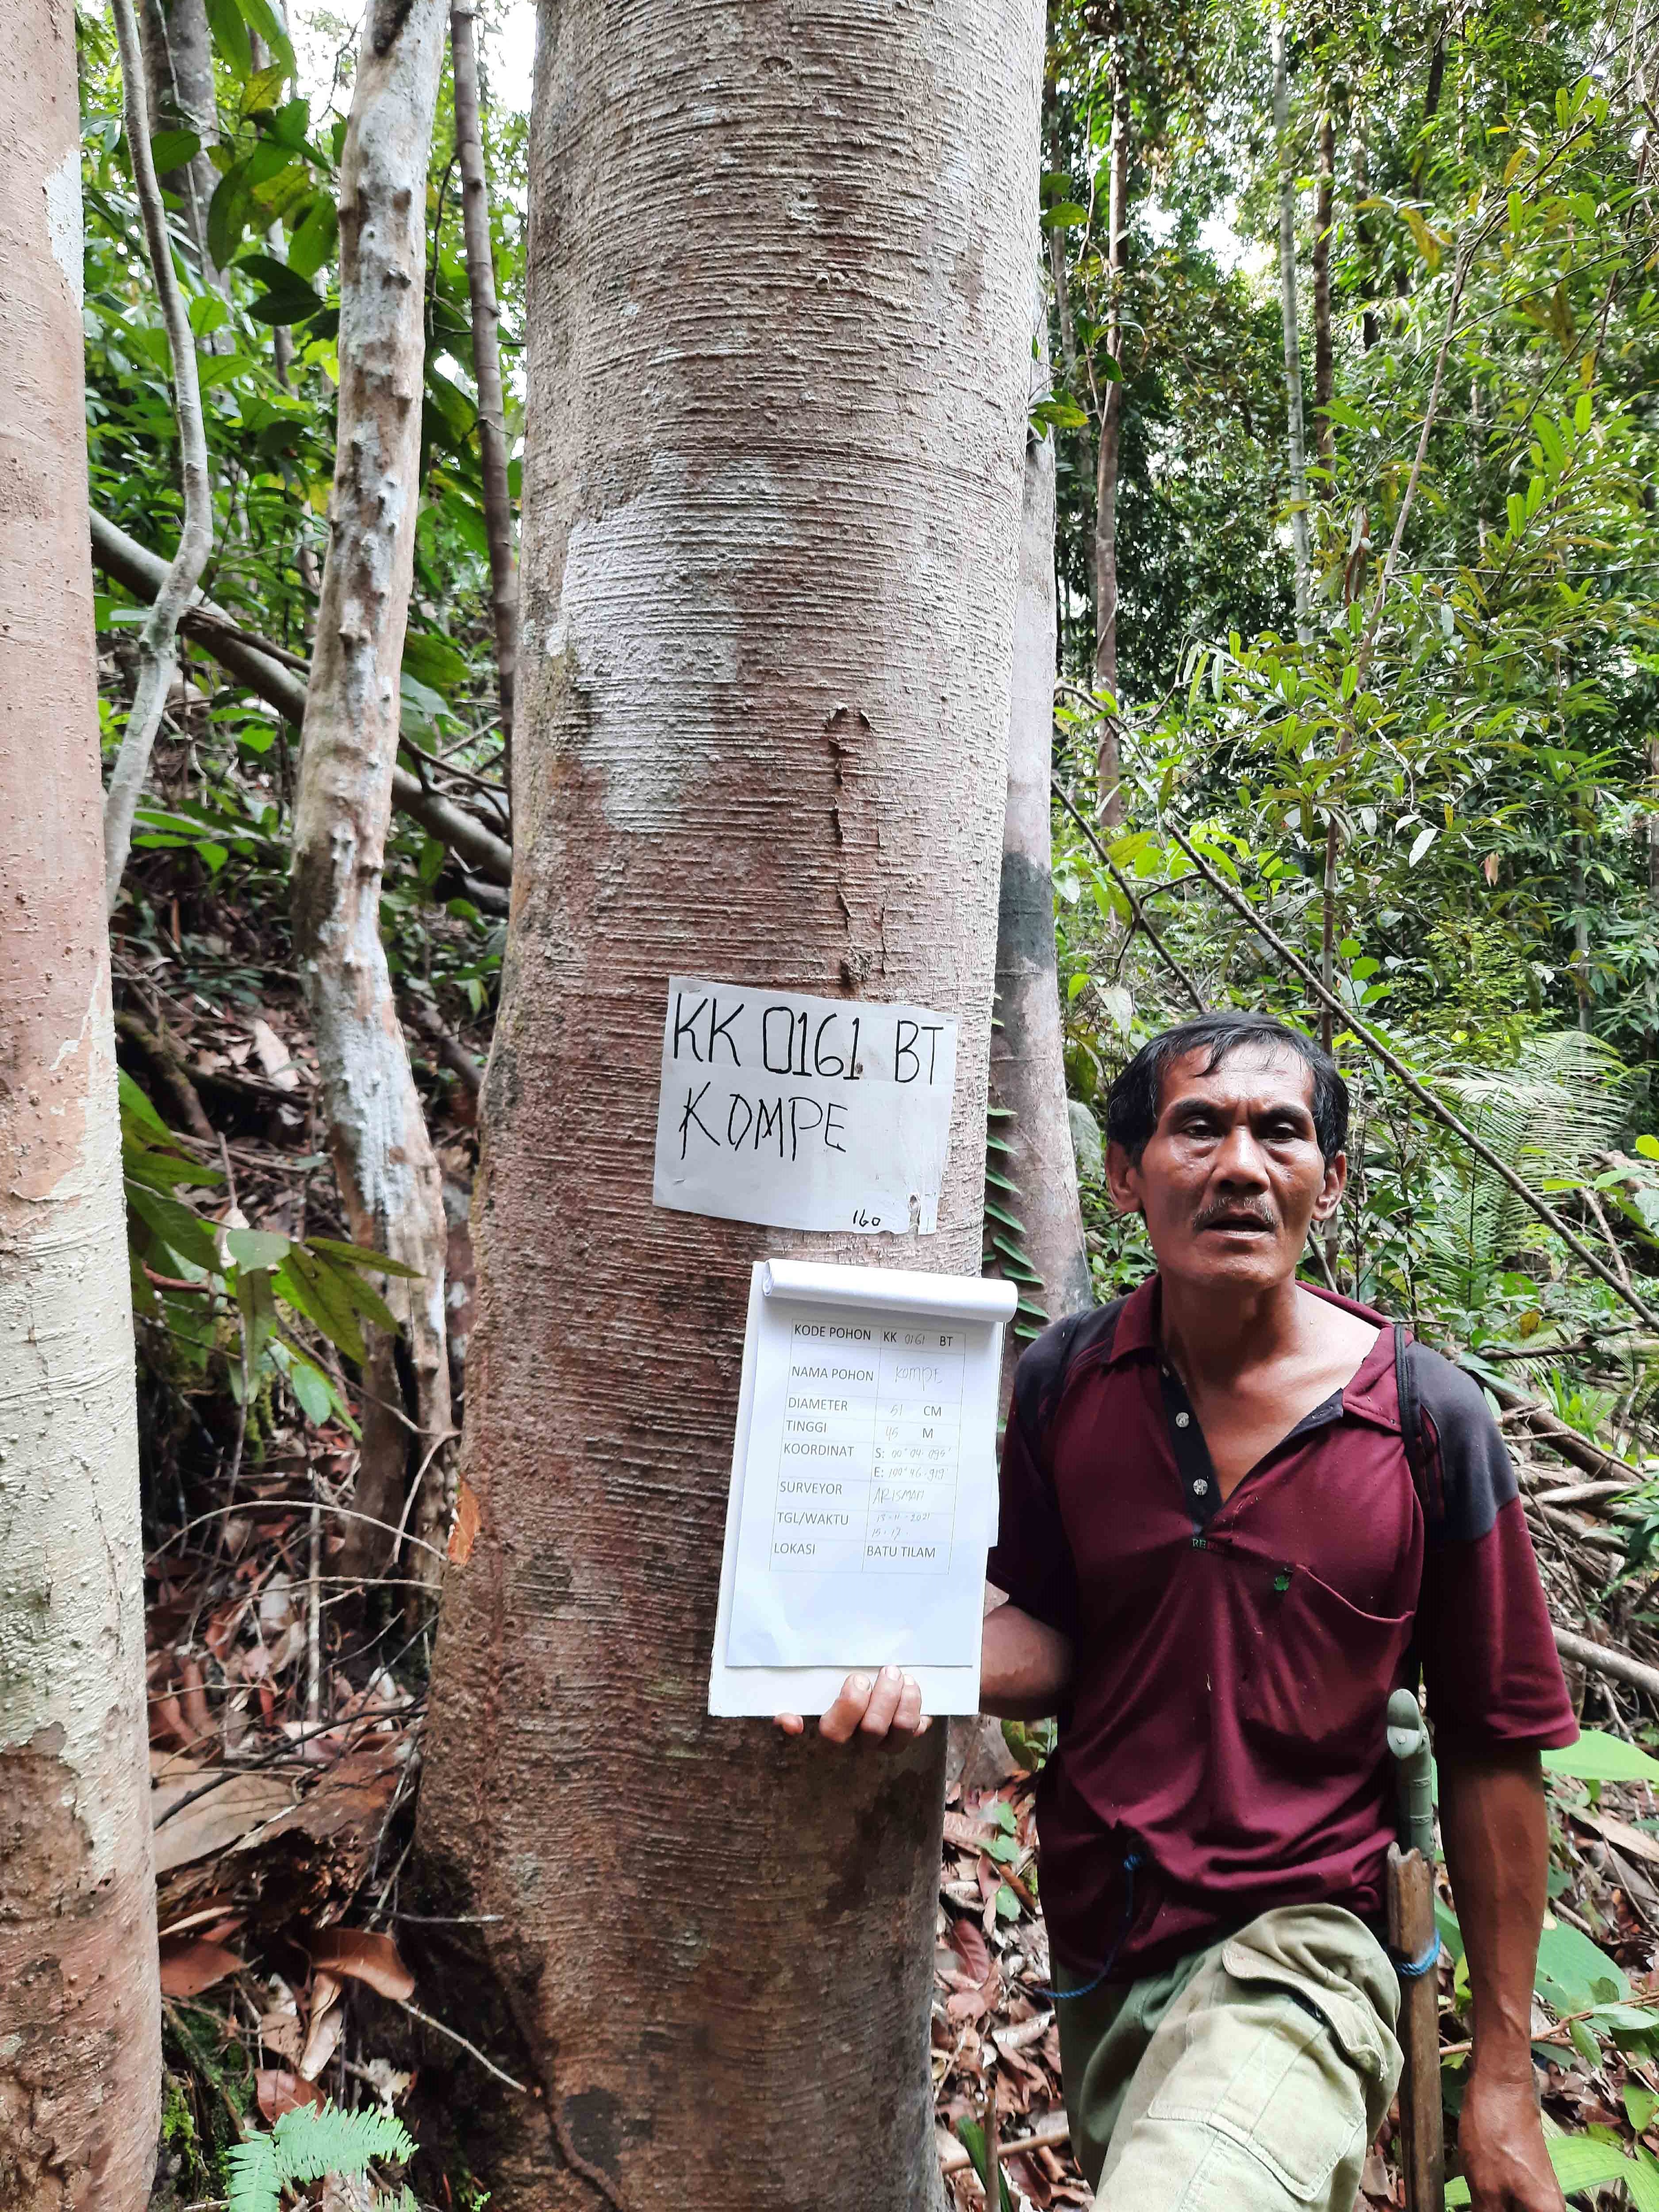 KK 0161 BT
KOMPE
160
KODE POHON KK 0161 BT
NAMA POHON KOMPE
DIAMETER 51 CM
TINGGI 45 M
KOORDINAT S: 00° 04' 099'
E: 100° 46 - 919'
SURVEYOR ARISMAN
TGL/WAKTU 15 - 11 - 2021
15 - 17 -
LOKASI BATU TILAM